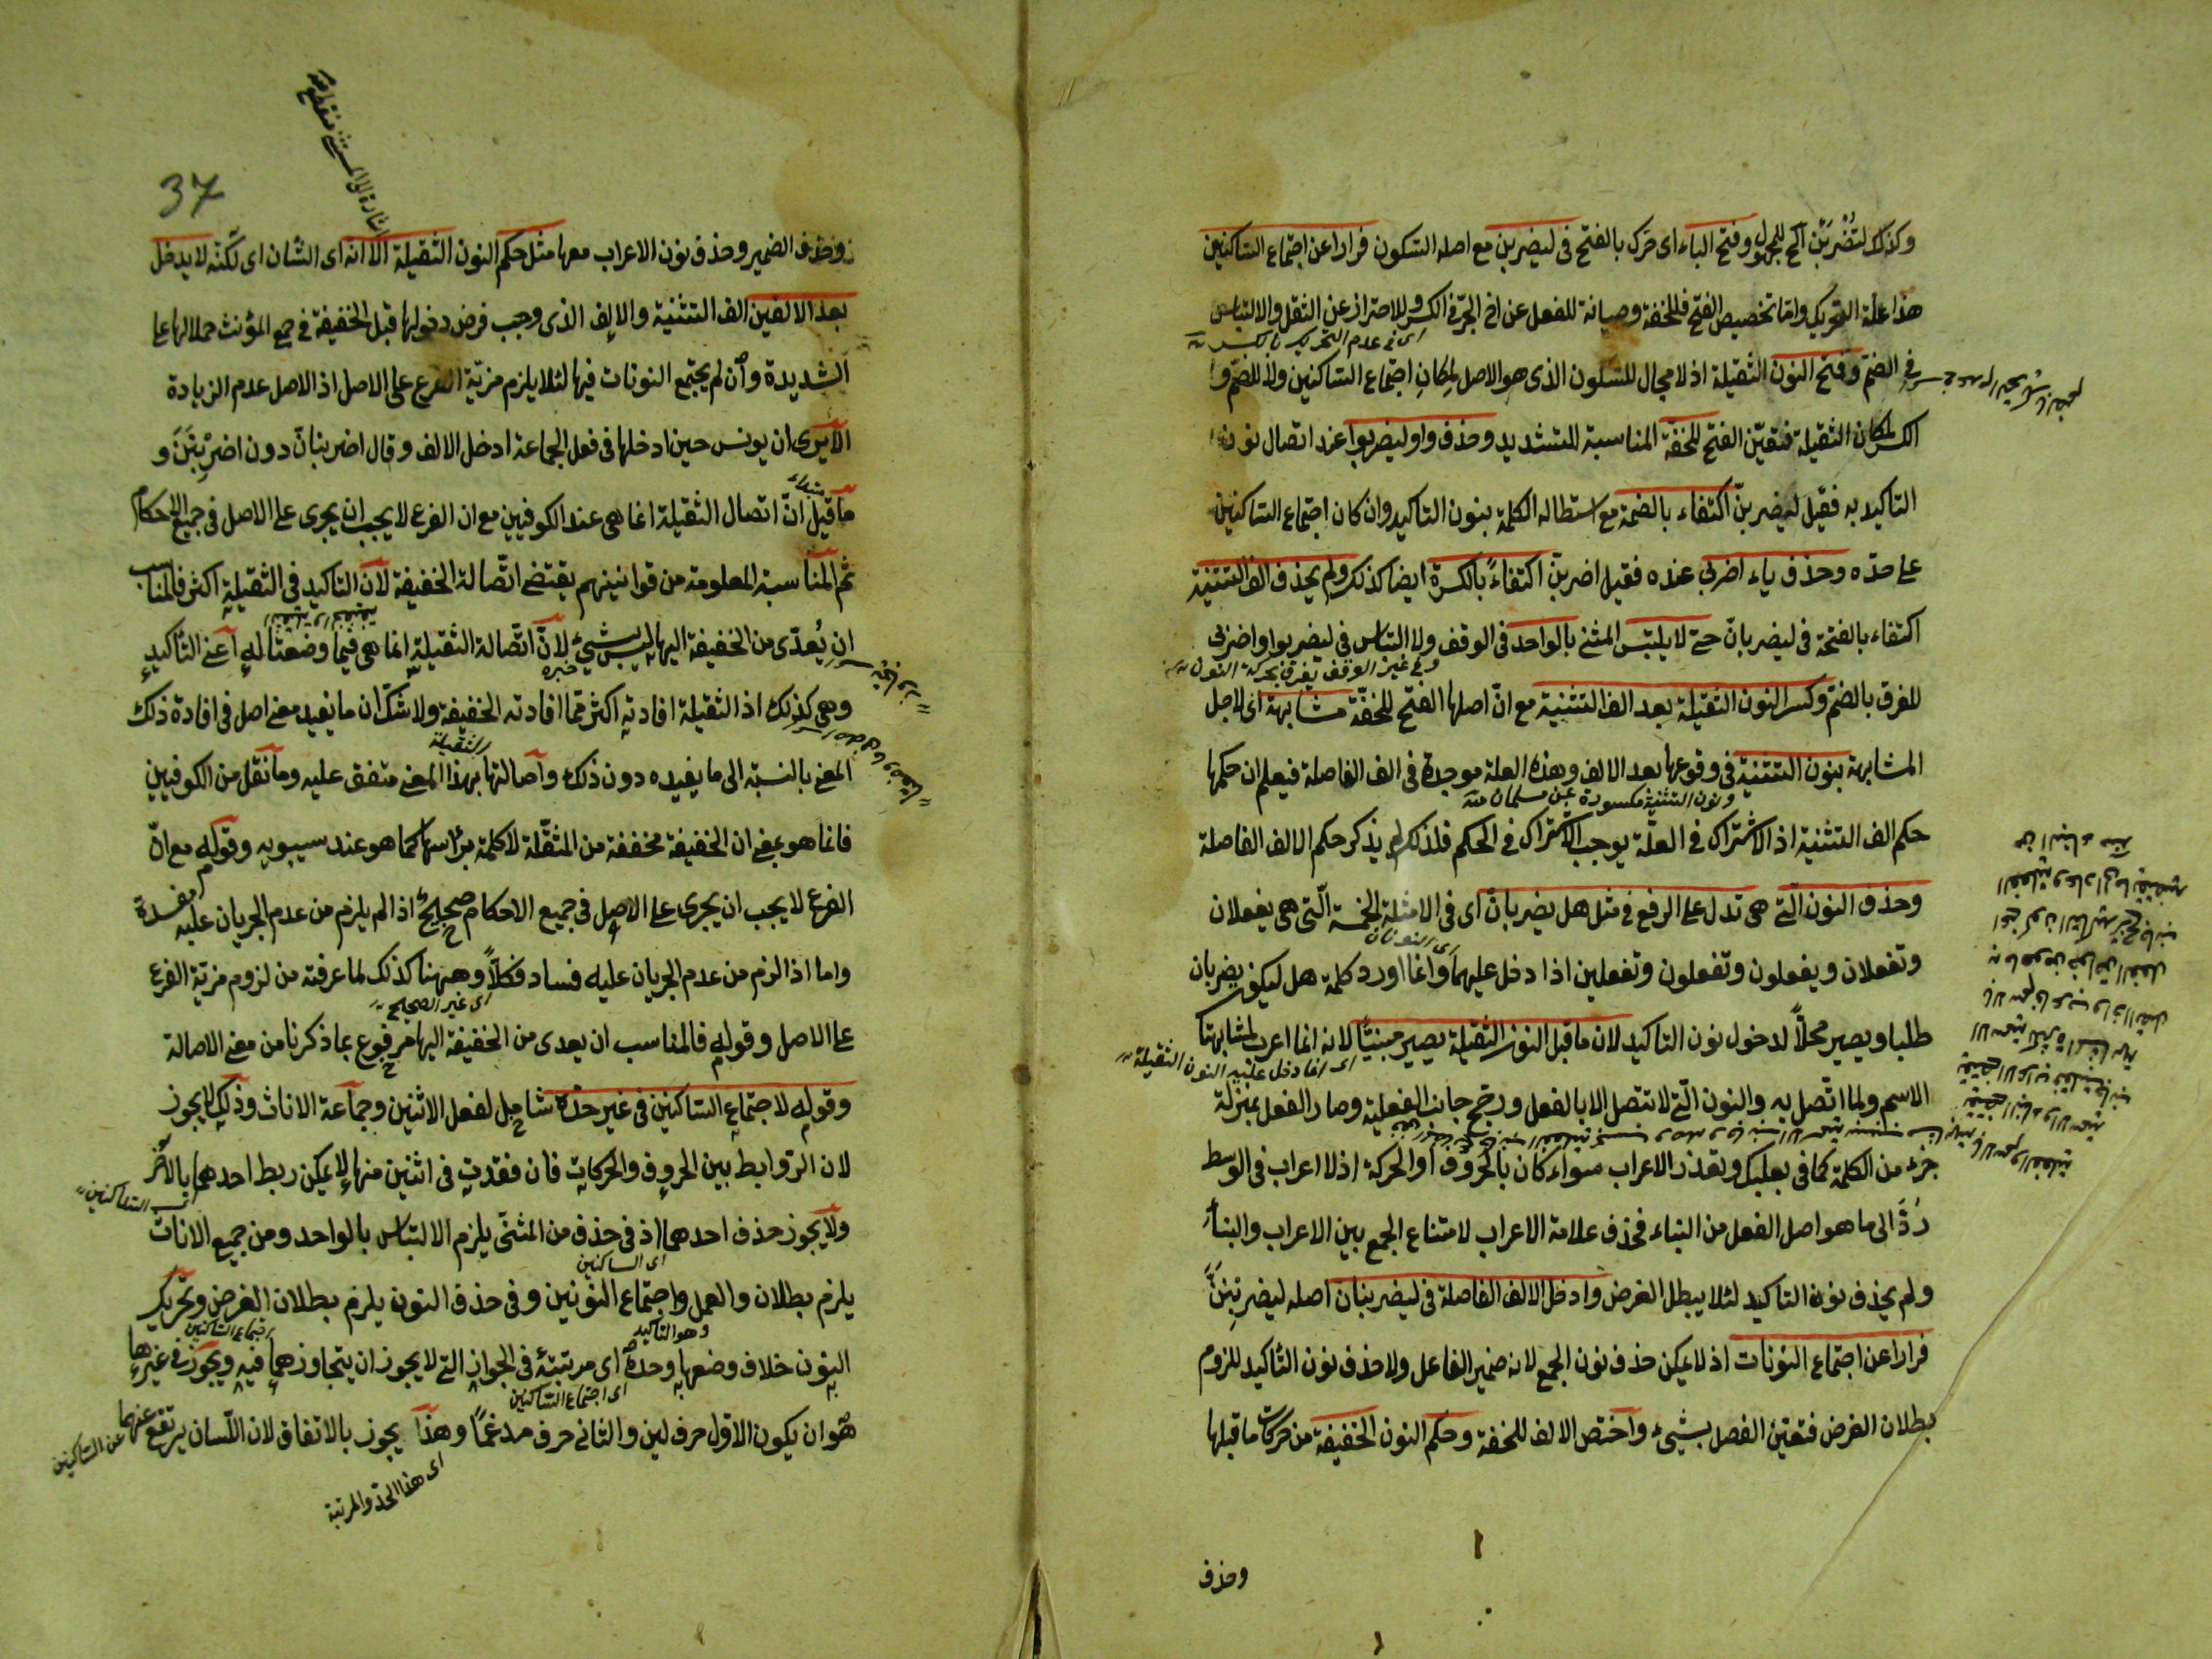 وكذلك لتضربن آلخ للمجهول وفتح الباء اى حرك بالفتح فى ليضربن مع اصله السكون فرارا عن اجتماع الساكنين
هذا علة التحريك واما تخصيص الفتح فللخفة وصيانة للفعل عن اخ الجر فى الكسر وللاحتراز عن الثقل والالتباس
فى الضم وفتح النون الثقيلة اذ لا مجال للسكون الذى هو الاصل لمكان اجتماع الساكنين ولا للضم و
الكسر لمكان الثقيلة فتعين الفتح للخفة المناسبة للتشديد وحذف واو ليضربوا عند اتصال نون
التاكيد به فقيل ليضربن اكتفاء بالضمة مع استطالة الكلمة بنون التاكيد وان كان اجتماع الساكنين
على حده وحذف ياء اضربى عنده فقيل اضربن اكتفاءً بالكسرة ايضا كذلك ولم يحذف الف التثنية
اكتفاء بالفتحة فى ليضربان حتى لا يلتبس المثنى بالواحد فى الوقف ولا التباس فى ليضربوا واضربى
وفى غير الوقف يفرق بحركة النون
للفرق بالضم وكسر النون الثقيلة بعد الف التثنية مع ان اصلها الفتح للخفة مشابهة اى لاجل
المشابهة بنون التثنية فى وقوعها بعد الالف وهذه العلة موجدة فى الف الفاصلة فيعلم ان حكمها
ونون التثنية مكسورة عين مسلمان
حكم الف التثنية اذ الاشتراك فى العلة يوجب الاشتراك فى الحكم فلذلك لم يذكر حكم الالف الفاصلة
وحذف النون التى هى تدل على الرفع فى مثل هل يضربان اى فى الامثلة الخمسة التى هى يفعلان
اى النونان
وتفعلان ويفعلون وتفعلون وتفعلين اذا دخل عليهما وانما اورد كلمة هل ليكون يضربان
طلبا ويصير محلاً لدخول نون التاكيد لان ما قبل النون الثقيلة يصير مبنيًا لانه انما اعرب لمشابهته
اى انما دخل عليه النون الثقيلة
الاسم ولما اتصل به والنون التى لا تتصل الا بالفعل ورجح جانب الفعلية وصار الفعل بمنزلة
جزء من الكلمة كما فى بعلبك وتعذر الاعراب سواء كان بالحروف او الحركة اذ لا اعراب فى الوسط
رُدّ الى ما هو اصل الفعل من البناء فحذف علامة الاعراب لامتناع الجمع بين الاعراب والبناء
ولم يحذف نون التاكيد لئلا يبطل الغرض وادخل الالف الفاصلة فى ليضربنان اصله ليضربننّ
فرارا عن اجتماع النونات اذ لا يمكن حذف نون الجمع لانه ضمير الفاعل ولا حذف نون التاكيد للزوم
بطلان الغرض فتعين الفصل بشىء واختص الالف للخفة وحكم النون الخفيفة من حركات ما قبلها
وحذف
37
وحذف الضمير وحذف نون الاعراب معها مثل حكم النون الثقيلة الا انه اى الشان اى لكنه لا يدخل
بعد الالفين الف التثنية والالف الذى وجب فرض دخولها قبل الخفيفة فى جمع المؤنث حملا لها على
الشديدة وان لم يجتمع النونات فيها لئلا يلزم مزية الفرع على الاصل اذ الاصل عدم الزيادة
الا يرى ان يونس حين ادخلها فى فعل الجماعة ادخل الالف وقال اضربنان دون اضربنن و
ما قيل ان اتصال الثقيلة انما هى عند الكوفيين مع ان الفرع لا يجب ان يجرى على الاصل فى جميع الاحكام
ثم المناسبة المعلومة من قوانينهم يقتضى اصالة الخفيفة لان التاكيد فى الثقيلة اكثر فالمناسب
ان يُعدّى من الخفيفة اليها ليس بشىء لان اصالة الثقيلة انما هى فيما وضعتا له اعنى التاكيد
خبره
وهى كذلك اذ الثقيلة افادته اكثر مما افادته الخفيفة ولا شك ان ما يفيد معنى اصل فى افادة ذلك
الثقيلة
المعنى بالنسبة الى ما يفيده دون ذلك واصالتها بهذا المعنى متفق عليه وما نقل من الكوفيين
فانما هو بمعنى ان الخفيفة مخففة من المثقلة لا كلمة برأسها كما هو عند سيبويه وقوله مع ان
الفرع لا يجب ان يجرى على الاصل فى جميع الاحكام صحيح اذا لم يلزم من عدم الجريان عليه مفسدة
واما اذا لزم من عدم الجريان عليه فساد فكلا وههنا كذلك لما عرفته من لزوم مزية الفرع
اى غير الصحيح
على الاصل وقوله فالمناسب ان يعدى من الخفيفة اليها مرفوع بما ذكرنا من معنى الاصالة
وقوله لاجتماع الساكنين فى غير حده شامل لفعل الاثنين وجماعة الاناث وذلك لا يجوز
لان الروابط بين الحروف والحركات فان فقدت فى اثنين منها لا يمكن ربط احدهما بالآخر
ولا يجوز حذف احدهما اذ فى حذف من المثنى يلزم الالتباس بالواحد ومن جميع الاناث
اى الساكنين
يلزم بطلان والعمل واجتماع النونين وفى حذف النون يلزم بطلان الغرض وتحريك
وهو التاكيد
اجتماع الساكنين
النون خلاف وضعها وحده اى مرتبته فى الجواز التى لا يجوز ان يتجاوزهما فيه ويجوز فى غيرها
اى اجتماع الساكنين
هو ان يكون الاول حرف لين والثانى حرف مدغمًا وهذا يجوز بالاتفاق لان اللسان يرتفع عنهما
عن الساكنين
اى هذا الحد والمرتبة